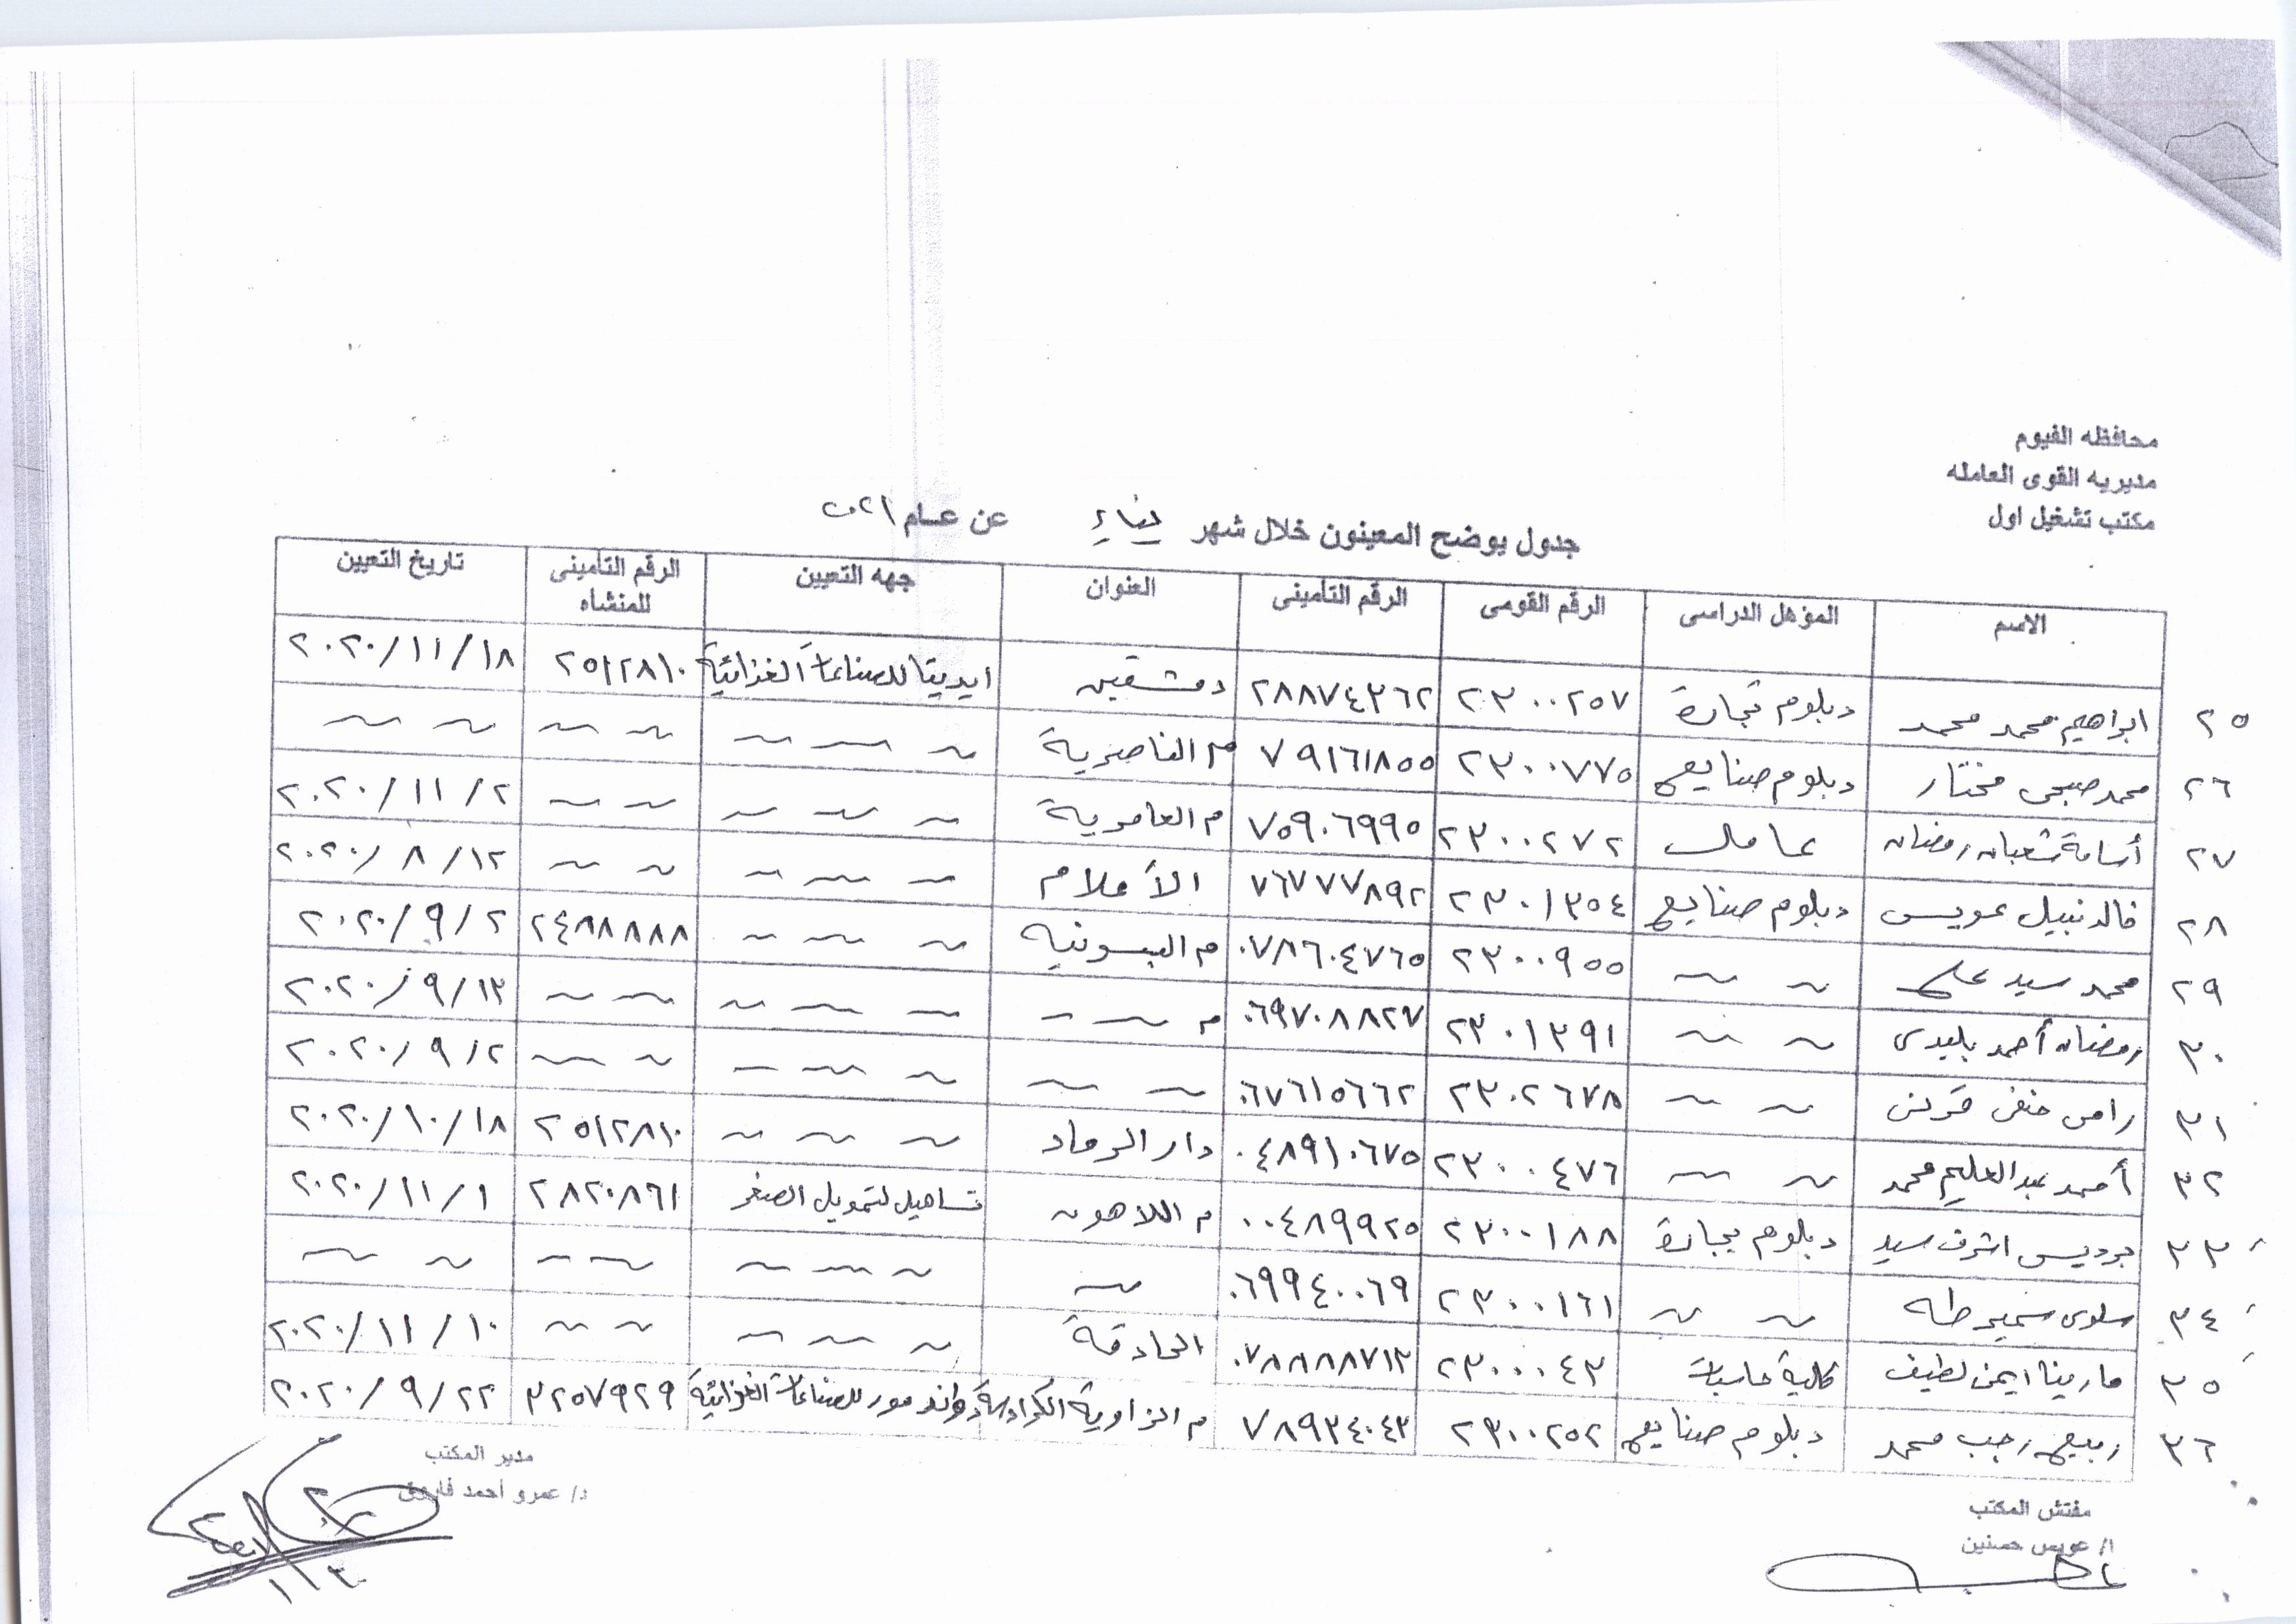 محافظه الفيوم
مديريه القوى العامله
مكتب تشغيل اول
جدول يوضح المعينون خلال شهر يناير عن عام ٢٠٢١
الاسم المؤهل الدراسى الرقم القومى الرقم التأمينى العنوان جهه التعيين الرقم التأمينى للمنشاه تاريخ التعيين
٢٥ ابراهيم محمد محمد دبلوم تجارة ٢٣٠٠٢٥٧ ٢٨٨٧٤٣٦٢ دمشقين ايديتا للصناعات الغذائية ٢٥١٢٨١٠ ٢٠٢٠/١١/١٨
٢٦ محمد صبحى مختار دبلوم صنايع ٢٣٠٠٧٧٥ ٧٩١٦١٨٥٥ م الناصرية ~ ~ ~ ~ ~ ~ ~
٢٧ أسامة شعبان رمضان عامل ٢٣٠٠٢٧٢ ٧٥٩٠٦٩٩٥ م العامرية ~ ~ ~ ~ ~ ٢٠٢٠/١١/٢
٢٨ خالد نبيل عويس دبلوم صنايع ٢٣٠١٣٥٤ ٧٦٧٧٧٨٩٢ الأعلام ~ ~ ~ ~ ~ ٢٠٢٠/٨/١٢
٢٩ محمد سيد على ~ ~ ٢٣٠٠٩٥٥ ٠٧٨٦٠٤٧٦٥ م البسونيه ~ ~ ~ ٢٤٨٨٨٨٨ ٢٠٢٠/٩/٢
٣٠ رمضان أحمد بليدى ~ ~ ٢٣٠١٣٩١ ٠٦٩٧٠٨٨٢٧ م ~ ~ ~ ~ ~ ~ ~ ٢٠٢٠/٩/١٣
٣١ رامى حنفى قرنى ~ ~ ٢٣٠٢٦٧٨ ٠٦٧٦١٥٦٦٢ ~ ~ ~ ~ ~ ~ ~ ٢٠٢٠/٩/٢
٣٢ أحمد عبد العليم محمد ~ ~ ٢٣٠٠٤٧٦ ٠٤٨٩١٠٦٧٥ دار الرماد ~ ~ ~ ٢٥١٢٨١٠ ٢٠٢٠/١٠/١٨
٣٣ اشرف سيد دبلوم تجارة ٢٣٠٠١٨٨ ٠٠٤٨٩٩٢٥ م اللاهون تساهيل لتمويل الصغر ٢٨٢٠٨٦١ ٢٠٢٠/١١/١
٣٤ سلوى سمير طه ~ ~ ٢٣٠٠١٦١ ٠٦٩٩٤٠٠٦٩ ~ ~ ~ ~ ~ ~ ~ ~
٣٥ مارينا ايمن لطيف كلية حاسبات ٢٣٠٠٠٤٣ ٠٧٨٨٨٨٧١٣ الحادقة ~ ~ ~ ~ ~ ٢٠٢٠/١١/١٠
٣٦ ربيع رجب محمد دبلوم صنايع ٢٣٠٠٢٥٢ ٧٨٩٣٤٠٤٣ م الزاوية الكرادسة للصناعات الغذائية ٣٢٥٧٩٢٩ ٢٠٢٠/٩/٢٢
مفتش المكتب
ا/ عويس حسنين
مدير المكتب
د/ عمرو أحمد فاروق